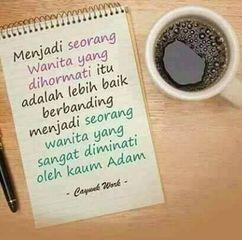 Menjadi seorang
wanita yang
dihormati itu
adalah lebih baik
berbanding
menjadi seorang
wanita yang
sangat diminati
oleh kaum Adam
- Cayunk Work -